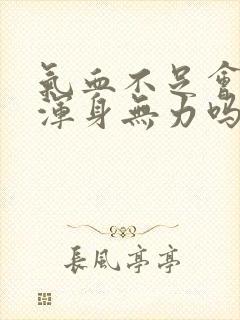 氣血不足會
渾身無力嗎
長風亭亭